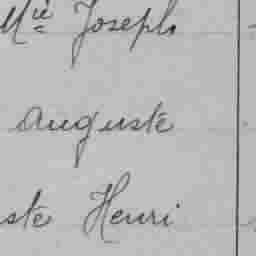 Mie Joseph
Auguste
ste Henri